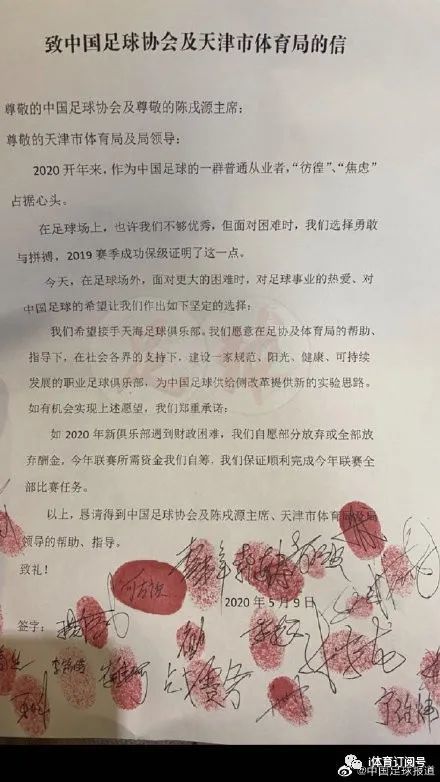 致中国足球协会及天津市体育局的信
尊敬的中国足球协会及尊敬的陈戌源主席：
尊敬的天津市体育局及局领导：
2020 开年来，作为中国足球的一群普通从业者，“彷徨”、“焦虑”
占据心头。
在足球场上，也许我们不够优秀，但面对困难时，我们选择勇敢
与拼搏，2019 赛季成功保级证明了这一点。
今天，在足球场外，面对更大的困难时，对足球事业的热爱、对
中国足球的希望让我们作出如下坚定的选择：
我们希望接手天海足球俱乐部。我们愿意在足协及体育局的帮助、
指导下，在社会各界的支持下，建设一家规范、阳光、健康、可持续
发展的职业足球俱乐部，为中国足球供给侧改革提供新的实验思路。
如有机会实现上述愿望，我们郑重承诺：
如 2020 年新俱乐部遇到财政困难，我们自愿部分放弃或全部放
弃酬金，今年联赛所需资金我们自筹，我们保证顺利完成今年联赛全
部比赛任务。
以上，恳请得到中国足球协会及陈戌源主席、天津市体育局及局
领导的帮助、指导。
致礼！
2020 年 5 月 9 日
签字：
i体育订阅号
@中国足球报道